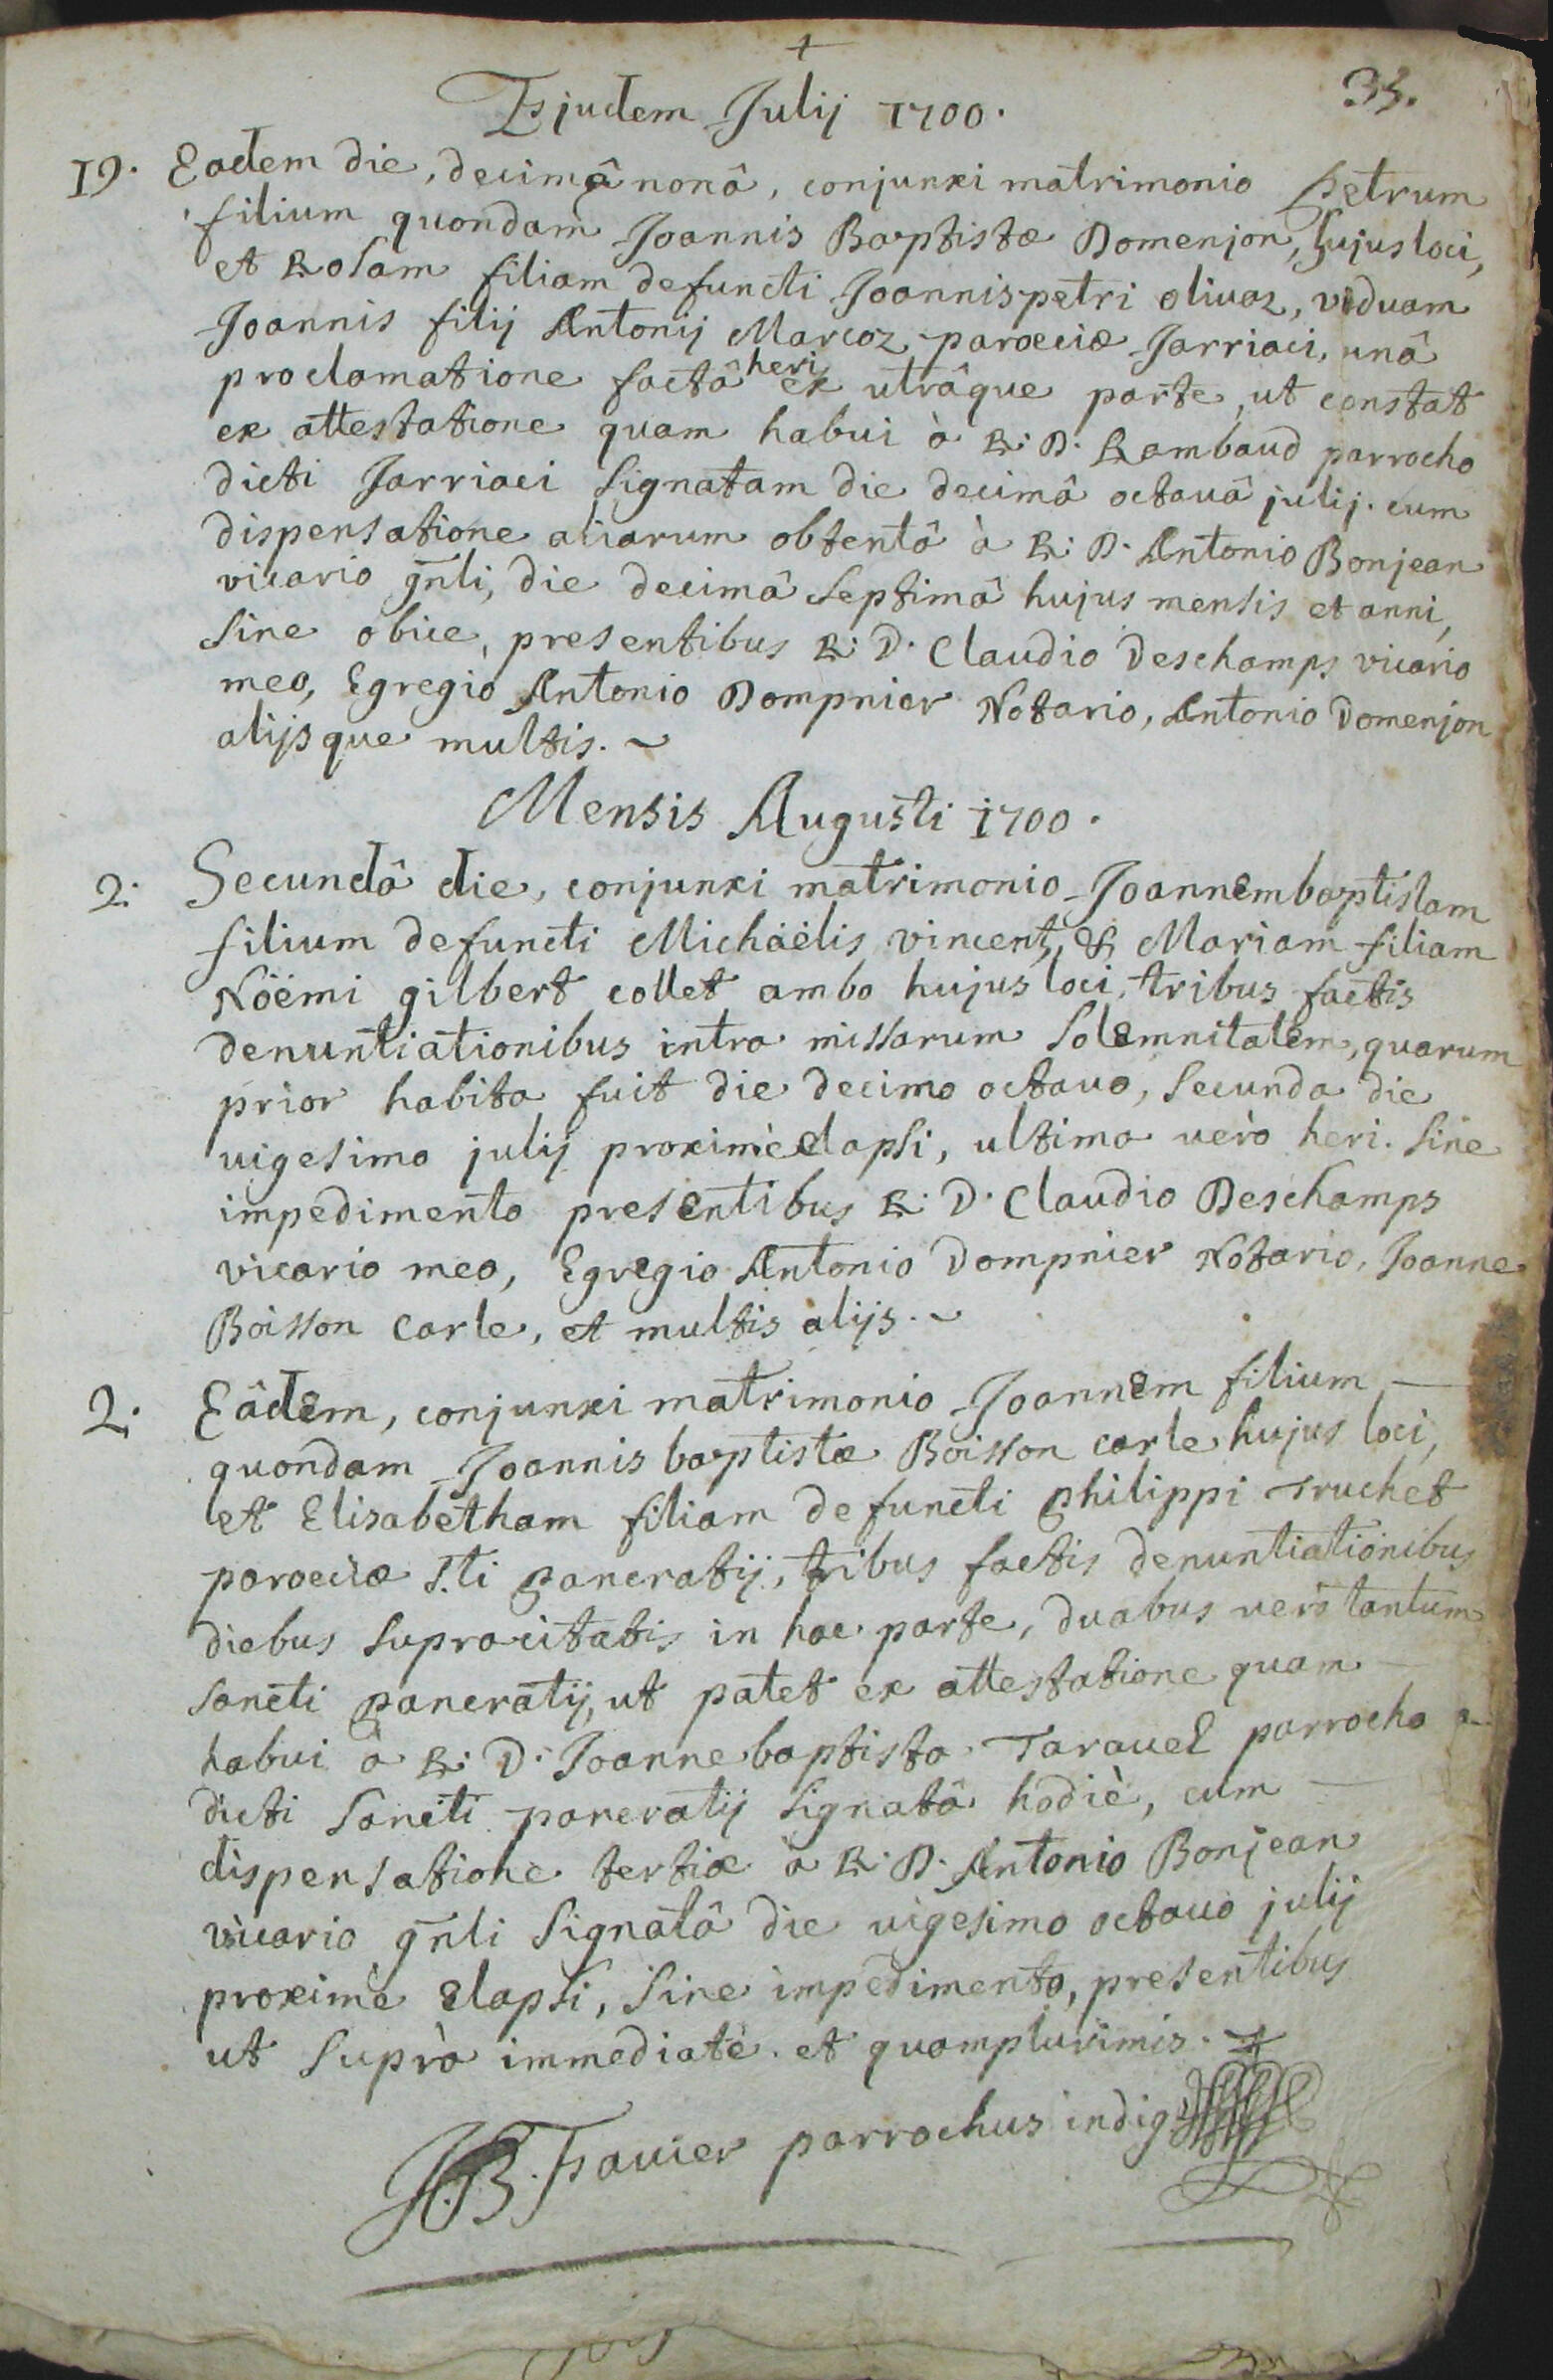 +
33.
Ejudem Julij 1700.
19. Eadem die, decimâ nonâ, conjunxi matrimonio petrum
filium quondam Joannis Baptistæ Domenjon, hujus loci,
et Rosam filiam defuncti Joannispetri oliuaz, viduam
Joannis filij Antonij Marcoz parœciæ Jarriaci, unâ
proclamatione factâ heri ex utrâque parte, ut constat
ex attestatione quam habui à R: D. Rambaud parrocho
dicti Jarriaci signatam die decimâ octauâ julij. cum
dispensatione aliarum obtentâ à R: D. Antonio Bonjean
vicario gñli, die decimâ septimâ hujus mensis et anni,
sine obice, presentibus R: D. Claudio Deschamps vicario
meo, Egregio Antonio Dompnier Notario, Antonio Domenjon
alijsque multis. ~
Mensis Augusti 1700.
2. Secundâ die, conjunxi matrimonio Joannembaptistam
filium defuncti Michaëlis vincent, & Mariam filiam
Nöëmi gilbert collet ambo hujus loci, tribus factis
denuntiationibus intra missarum solemnitatem, quarum
prior habita fuit die decimo octauo, secunda die
uigesimo julij proximè elapsi, ultima uerò heri. sine
impedimento presentibus R: D. Claudio Deschamps
vicario meo, Egregio Antonio Dompnier Notario, Joanne
Boisson Carle, et multis alijs. ~
2. Eâdem, conjunxi matrimonio Joannem filium
quondam Joannis baptistæ Boisson carle hujus loci,
et Elisabetham filiam defuncti philippi Truchet
parœciæ S.ti pancratij, tribus factis denuntiationibus
diebus supracitatis in hac parte, duabus uerò tantum
sancti pancratij, ut patet ex attestatione quam
habui à R: D. Joanne baptista Tarauel parrocho
dicti sancti pancratij signatâ hodiè, cum
dispensatione tertiæ à R. D. Antonio Bonjean
vicario gñli signatâ die uigesimo octauo julij
proximè elapsi, sine impedimento, presentibus
ut suprà immediatè. et quamplurimis.
JB. Fauier parrochus indig